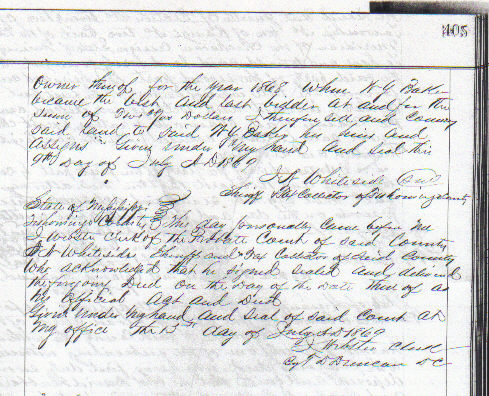 405
Owner thereof for the year 1868 When W Y Baker
became the best and last bidder at and for the
Sum of Two Dollars I therefore Sell and Convey
said land to said W Y Baker his heirs and
assigns Given under my hand and Seal this
9th Day of July A D 1869
Whiteside Seal
Sheriff & Tax Collector of Tishomingo County
State of Mississippi
Tishomingo County This day personally Came before me
Webster Clerk of the Probate Court of said County
Whiteside Sheriff and Tax Collector of Said County
Who acknowledged that he signed sealed and delivered
the foregoing Deed on the day of the date thereof as
his Official Act and Deed
Given under my hand and Seal of said Court at
my office the 13th day of July A D 1869
Webster Clerk
By T D Duncan D C